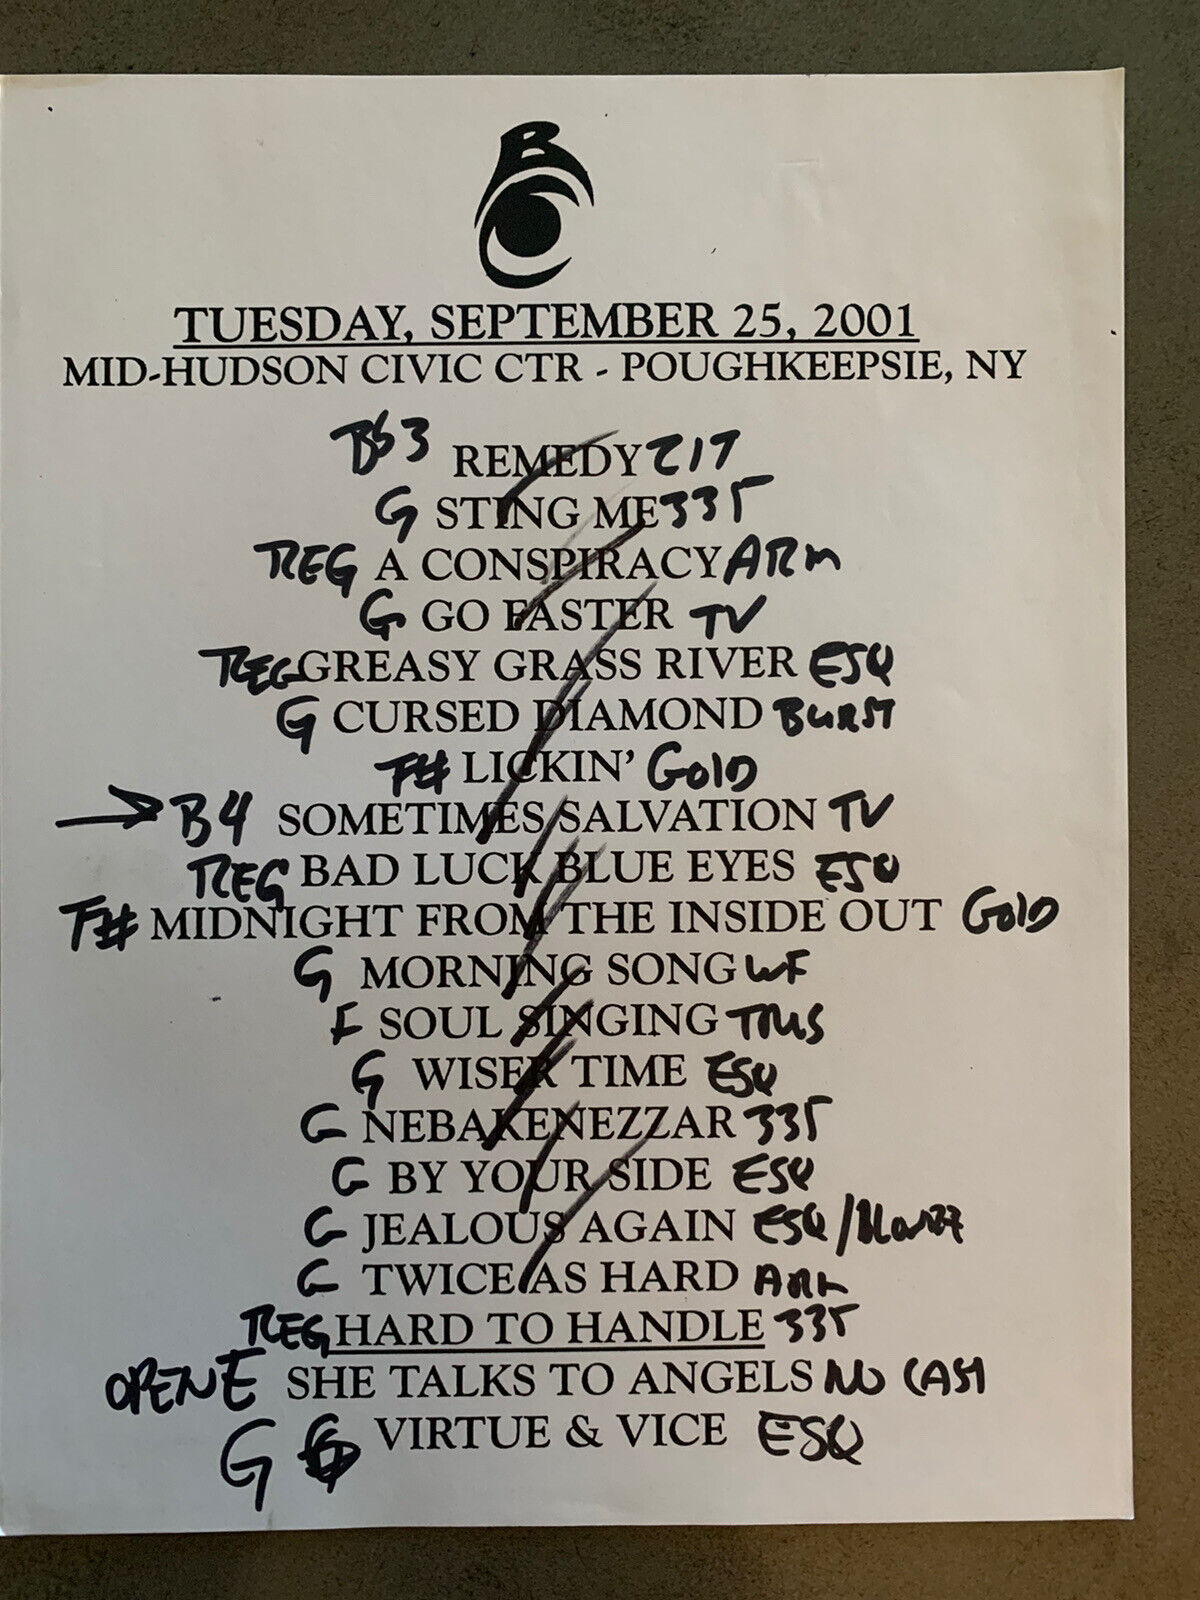 BC
TUESDAY, SEPTEMBER 25, 2001
MID-HUDSON CIVIC CTR - POUGHKEEPSIE, NY
REMEDY
G STING ME 335
REG A CONSPIRACY ARM
G GO FASTER TV
REG GREASY GRASS RIVER ESQ
G CURSED DIAMOND BURST
F# LICKIN' GOLD
→ B4 SOMETIMES SALVATION TV
REG BAD LUCK BLUE EYES ESQ
F# MIDNIGHT FROM THE INSIDE OUT GOLD
G MORNING SONG WF
F SOUL SINGING
G WISER TIME ESQ
G NEBAKENEZZAR 335
G BY YOUR SIDE ESQ
G JEALOUS AGAIN ESQ/
G TWICE AS HARD ARM
REG HARD TO HANDLE 335
OPEN E SHE TALKS TO ANGELS NO CAST
G VIRTUE & VICE ESQ